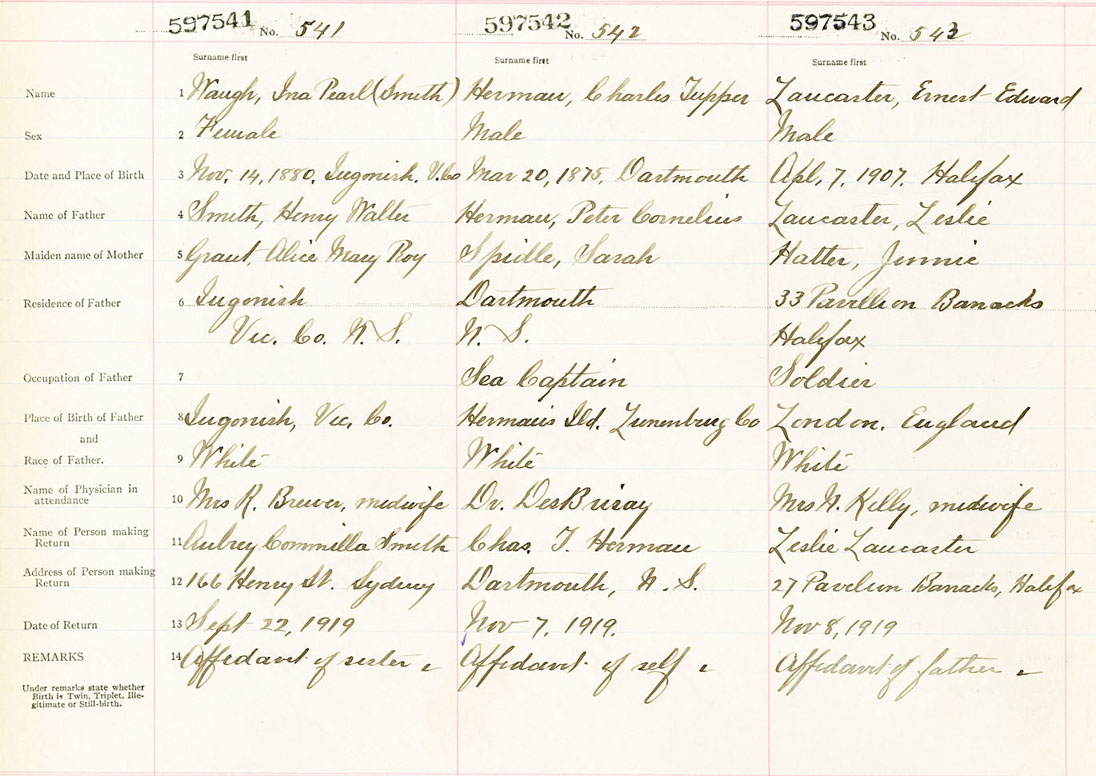 597541 No. 541 597542 No. 542 597543 No. 543
Surname first Surname first Surname first
Name 1 Waugh, Ina Pearl (Smith) Herman, Charles Tupper Lancaster, Ernest Edward
Sex 2 Female Male Male
Date and Place of Birth 3 Nov. 14, 1880, Ingonish. V. Co Mar 20, 1875, Dartmouth Apl, 7, 1907, Halifax
Name of Father 4 Smith, Henry Walter Herman, Peter Cornelius Lancaster, Leslie
Maiden name of Mother 5 Grant, Alice Mary Roy Spidle, Sarah Hatter, Jennie
Residence of Father 6 Ingonish Dartmouth 33 Pavillion Barracks
Vic. Co. N. S. N. S. Halifax
Occupation of Father 7 Sea Captain Soldier
Place of Birth of Father 8 Ingonish, Vic, Co. Herman's Ild. Lunenburg Co London, England
and
Race of Father. 9 White White White
Name of Physician in
attendance 10 Mrs R. Brewer, midwife Dr. DesBrisay Mrs N. Kelly, midwife
Name of Person making
Return 11 Aubrey Commilla Smith Chas. T. Herman Leslie Lancaster
Address of Person making
Return 12 166 Henry St. Sydney Dartmouth, N. S. 27 Pavilion Barracks, Halifax
Date of Return 13 Sept 22, 1919 Nov 7, 1919. Nov 8, 1919
REMARKS 14 Affidavit of sister Affidavit of self Affidavit of father
Under remarks state whether
Birth is Twin, Triplet, Ille-
gitimate or Still-birth.